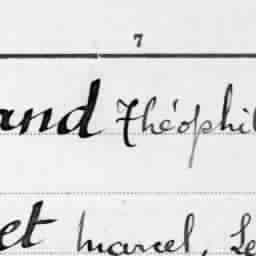 7
and Théophil
et Marcel, Le